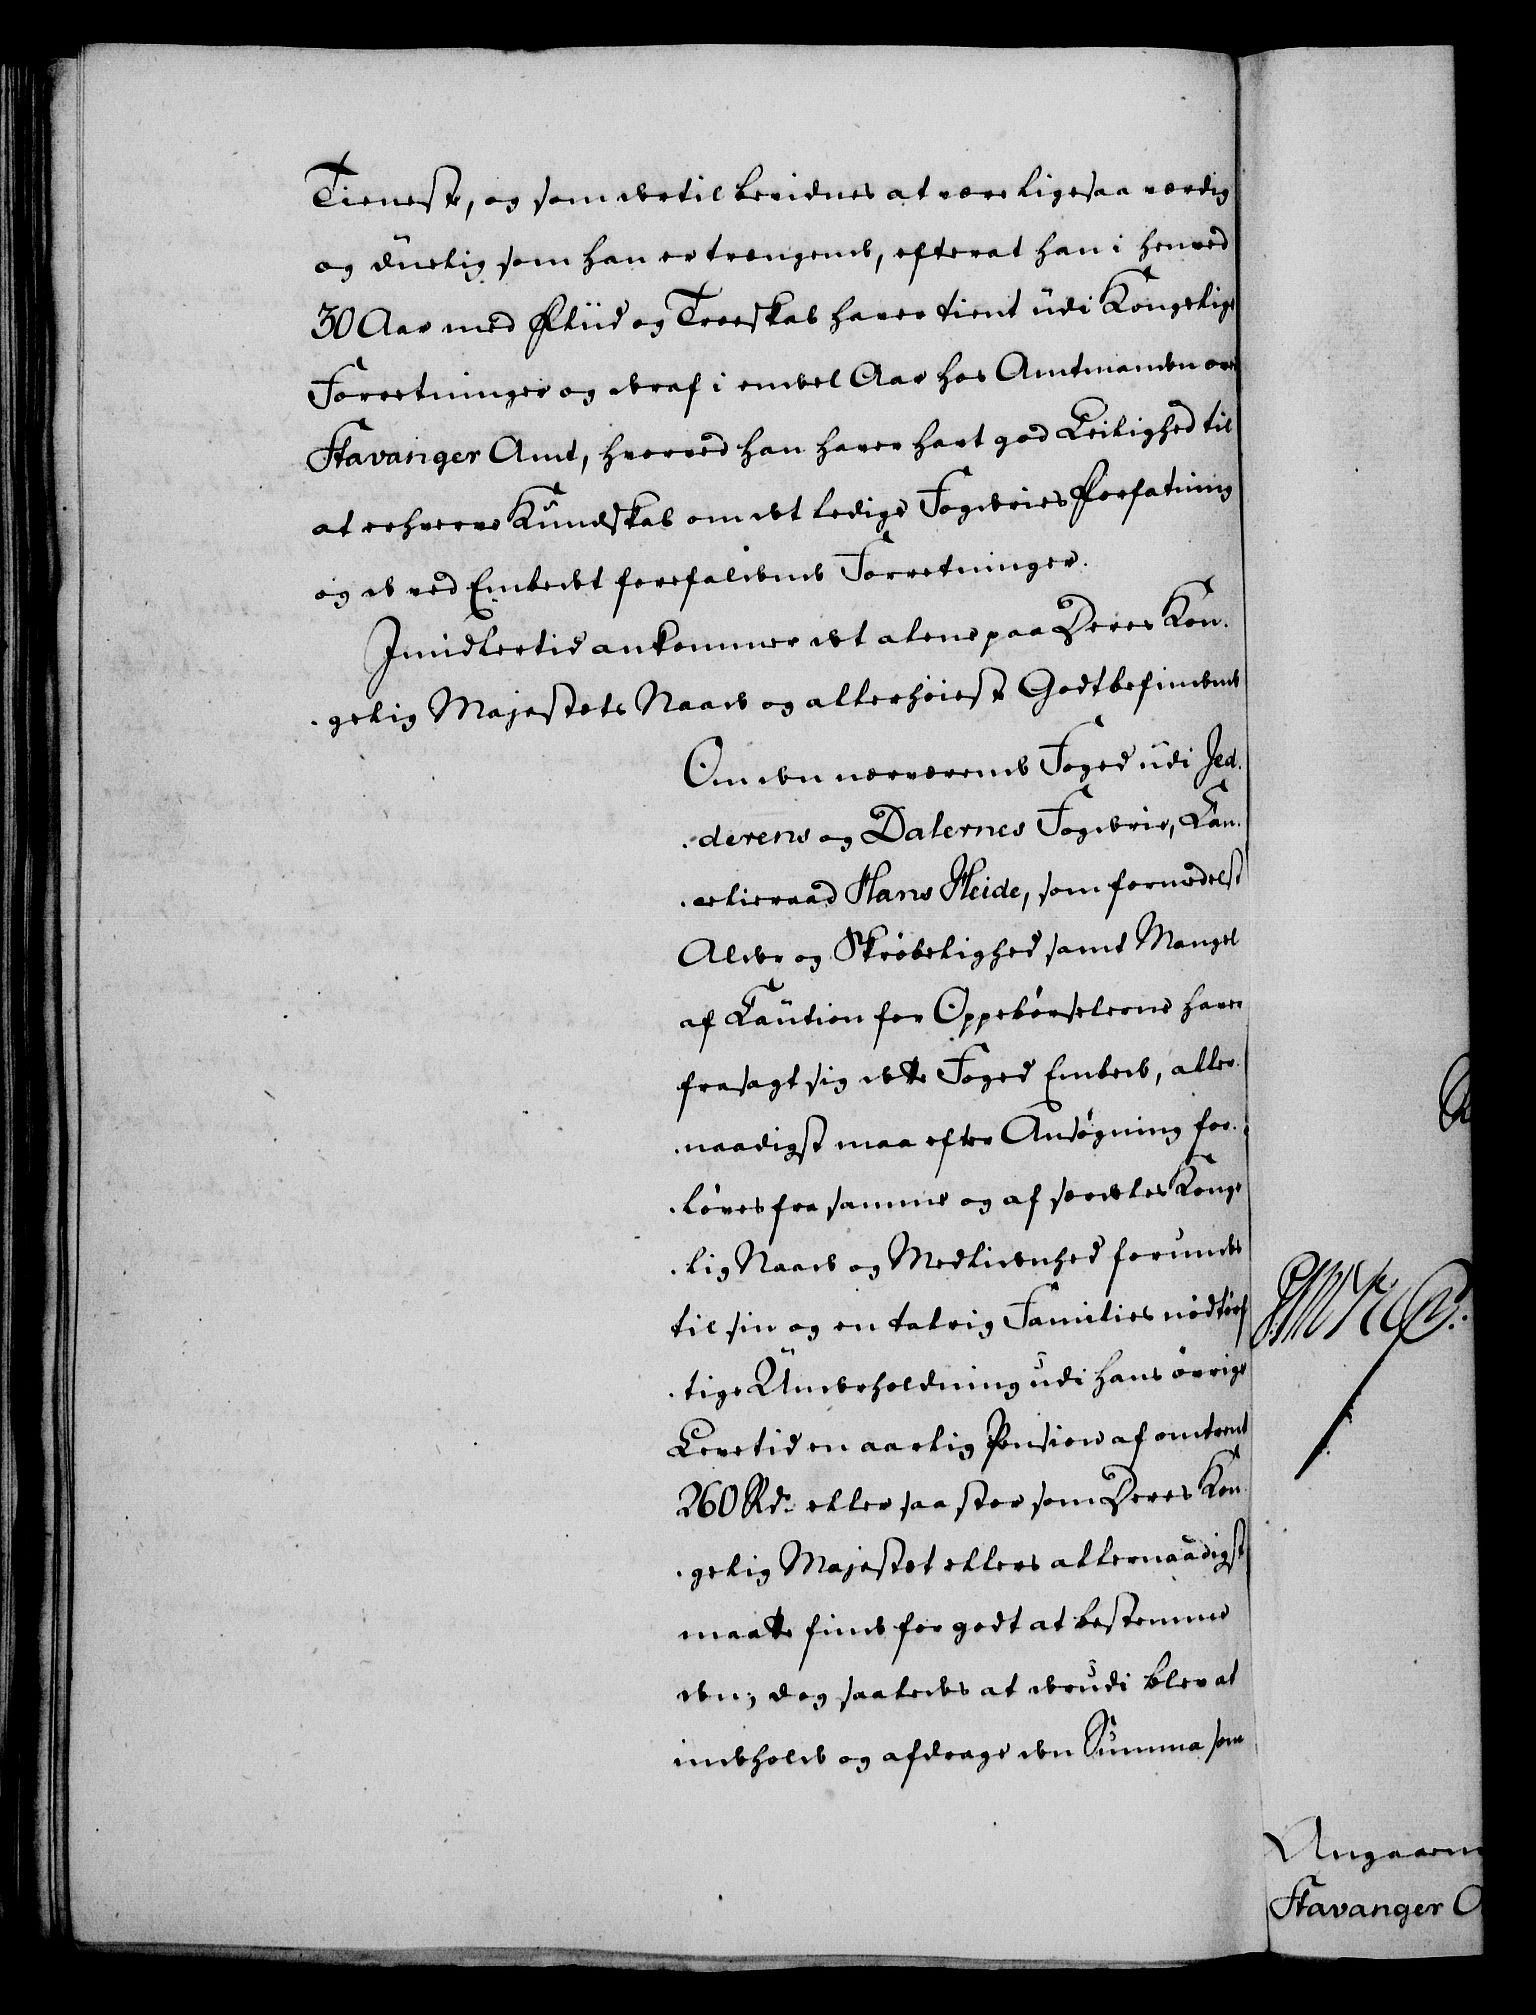 Tieneste, og som dertil bevidnes at være ligesaa værdig
og duelig som han er trængende, efterat han i henved
30 Aar med Fliid og Troeskab haver tient udi Kongelige
Forretninger og deraf i endeel Aar hos Amtmanden over
Stavanger Amt, hvorved han haver havt god Leilighed til
at erhverve Kundskab om det ledige Fogderies Forfatning
og de ved Embedet forefaldende Forretninger.
Imidlertid ankommer det alene paa Deres Kon-
-gelig Majestets Naade og allerhöieste Godtbefindende
Om den nærværende Foged udi Jed-
-derens og Dalernes Fogderie, Can-
-celieraad Hans Heide, som formedelst
Alder og Skröbelighed samt Mangel
af Caution for Oppebörselerne haver
frasagt sig dette Foged Embede, aller-
-naadigst maa efter Ansögning for-
-löves fra samme og af særdeles Konge-
-lig Naade og Medlidenhed forundes
til sin og en talrig Families nödtörf-
-tige Underholdning udi hans övrige
Levetid en aarlig Pension af omtrent
260 Rd. eller saa stor som Deres Kon-
-gelig Majestet ellers allernaadigst
maatte finde for godt at bestemme
den; dog saaledes at derudi blev at
indeholde og afdrage den Summa som
Angaaen
Stavanger A